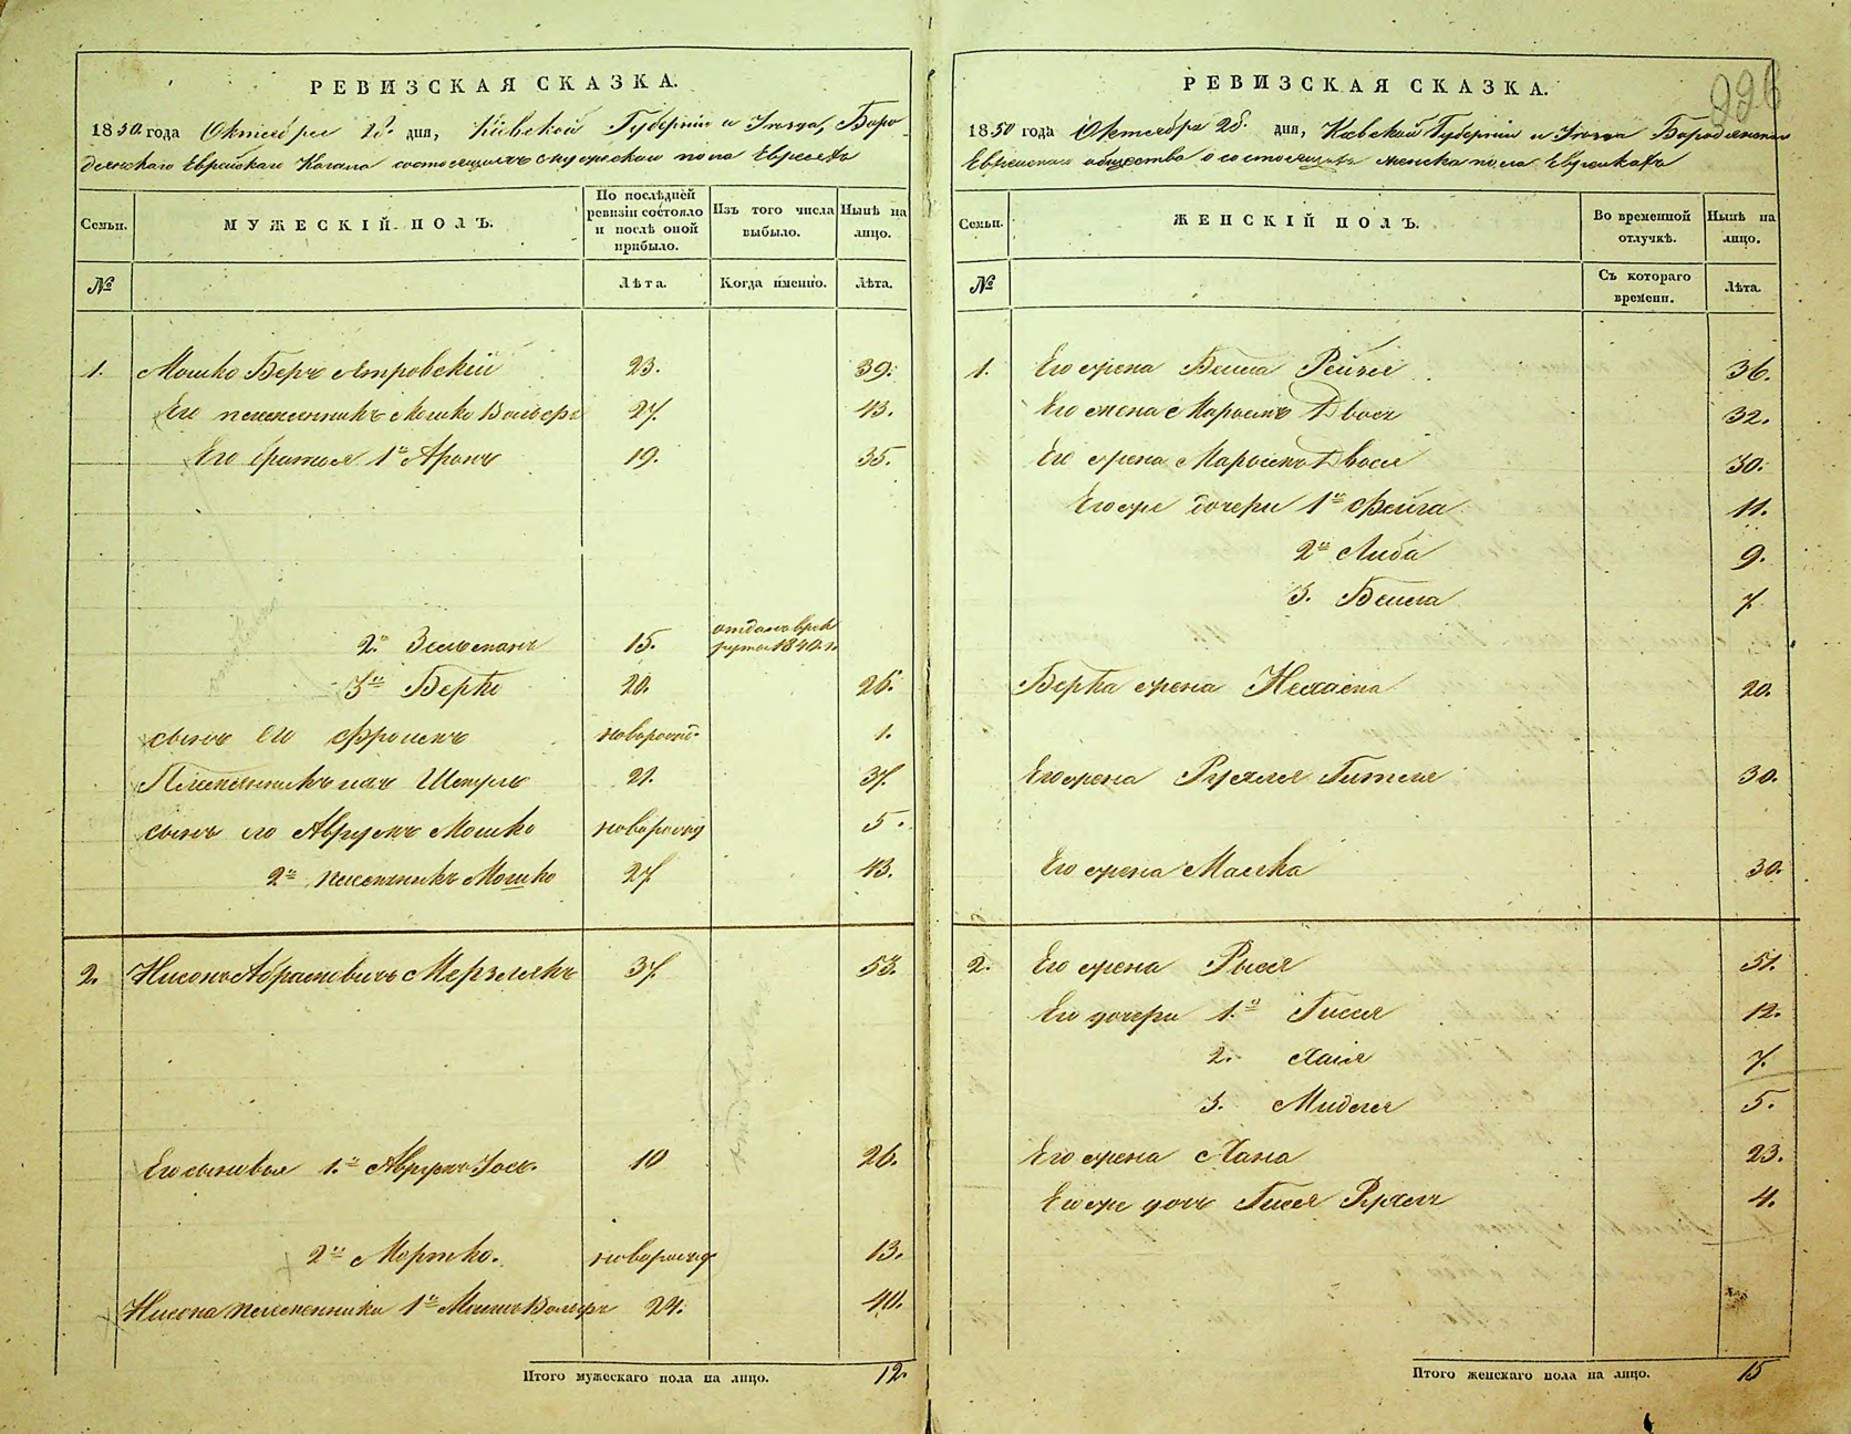 РЕВИЗСКАЯ СКАЗКА.
1850 года Октября 28. дня, Кіевской Губерніи и Уезда, Боро
дянскаго Еврейскаго Кагала состоящихъ мужескаго пола Евреяхъ
Семьи.
МУЖЕСКІЙ ПОЛЪ.
По послѣдней ревизіи состояло и послѣ оной прибыло.
Изъ того числа выбыло.
Нынѣ на лицо.
№
Лѣта.
Когда именно.
Лѣта.
1. Мошко Беръ Ятровскій 23. 39.
Его племянникъ Мошко Вольфъ 27. 43.
Его братья 1й Аронъ 19. 35.
2й Зельманъ 15. отданъ в рек
руты 1840 г.
3й Берко 20. 26.
сынъ его Фроимъ новорожд. 1.
Племянникъ ихъ Шмуль 21. 37.
сынъ его Аврумъ Мошко новорожд 5.
2й племянникъ Мошко 27. 43.
2. Нисонъ Абрамовичъ Мерзлякъ 37. 53.
Его сыновья 1й Аврумъ Иось. 10 26.
2й Мортко. новорожд 13.
Нисона племянники 1й Мошко Вольфъ 24. 40.
Итого мужескаго пола на лицо. 12.
226
РЕВИЗСКАЯ СКАЗКА.
1850 года Октября 28. дня, Кіевской Губерніи и Уезда Бородянскаго
Еврейскаго общества о состоящихъ женска пола Еврейкахъ
Семьи.
ЖЕНСКІЙ ПОЛЪ.
Во временной отлучкѣ.
Нынѣ на лицо.
№
Съ котораго времени.
Лѣта.
1. Его жена Бейла Рейзя 36.
Его жена Марьямъ Двося 32.
Его жена Марьямъ Двося 30.
Его же дочери 1я Фейга 11.
2я Либа 9.
3. Бейла 7.
Берка жена Нехама 20.
Его жена Рухля Гитля 30.
Его жена Малка 30.
2. Его жена Рыся 51.
Его дочери 1я Гися 12.
2. Хаія 7.
3. Мидля 5.
Его жена Хана 23.
Его же дочь Гися Рухля 4.
Итого женскаго пола на лицо. 15